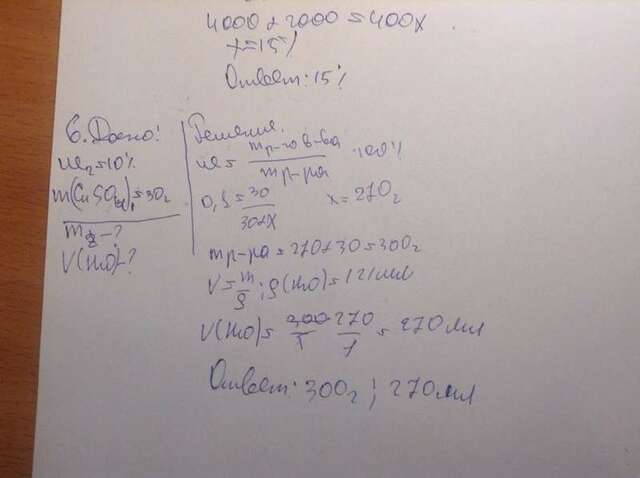 4000 + 2000 = 400x
x=15%
Ответ: 15%
6. Дано:
ω₂=10%
m(CuSO₄)=30г
m₂-?
V(H₂O)-?
Решение.
ω = mр-го в-ва / mр-ра · 100%
0,1 = 30 / 30+x x=270г
mр-ра = 270+30=300г
V= m/ρ ; ρ(H₂O)=1 г/мл
V(H₂O)= 300 270/1 = 270 мл
Ответ: 300г ; 270 мл